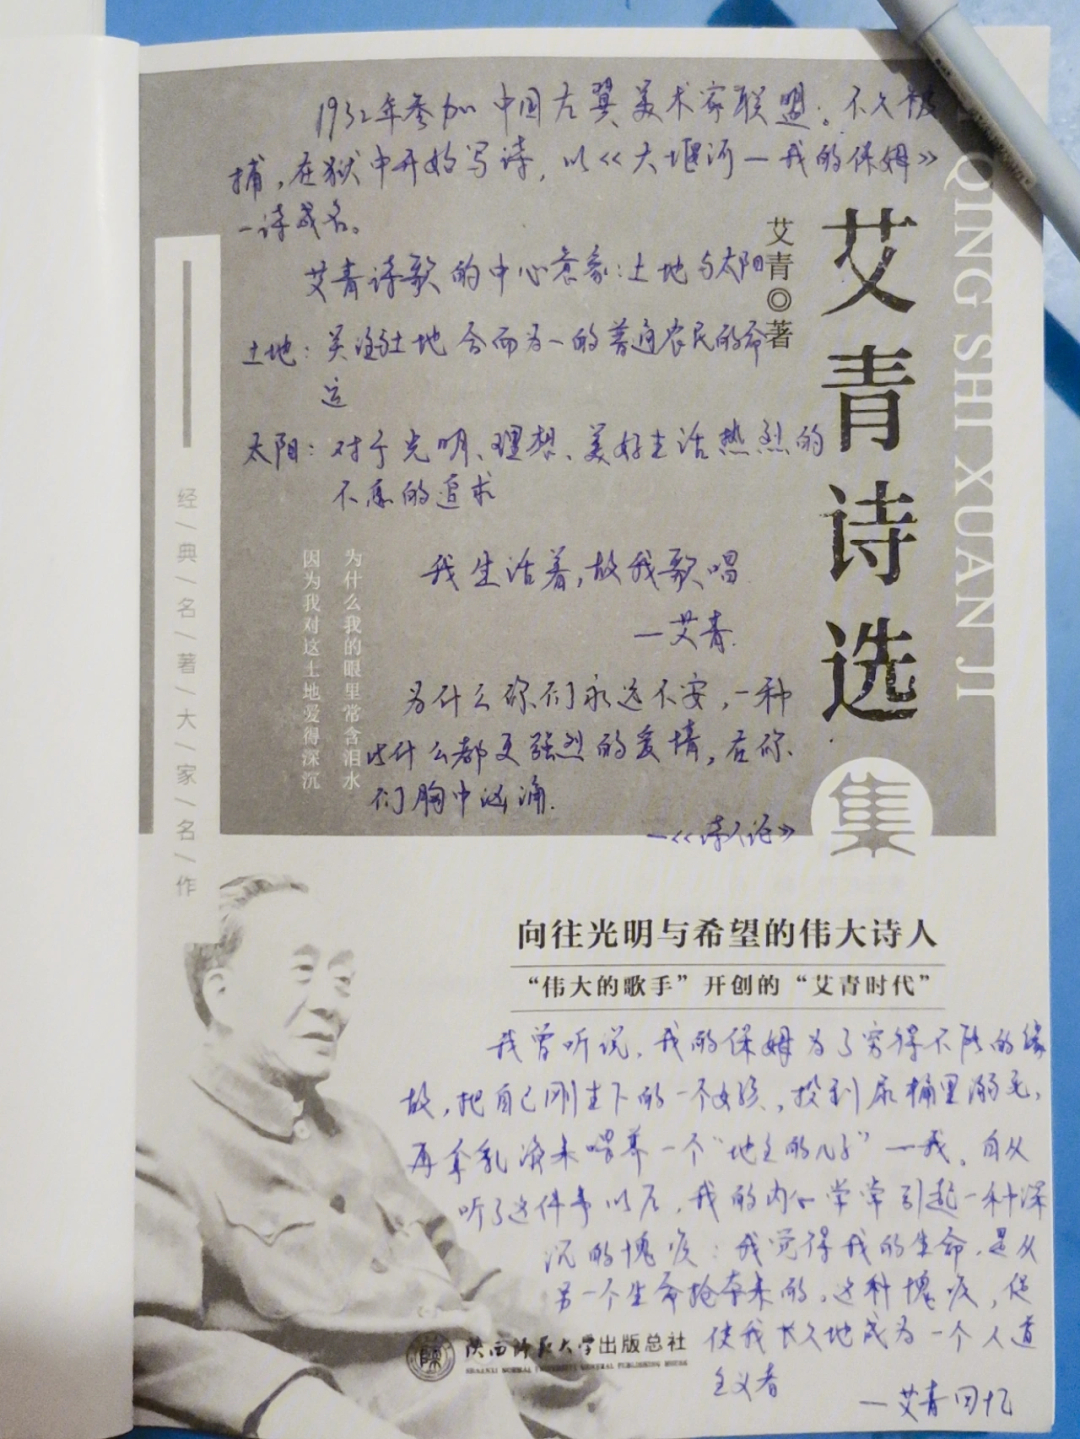 1932年参加中国左翼美术家联盟。不久被
捕,在狱中开始写诗,以《大堰河—我的保姆》
一诗成名。
艾青诗歌的中心意象:土地与太阳
土地:关注土地合而为一的普通农民的命
运
太阳:对于光明、理想、美好生活热烈的
不息的追求
我生活着,故我歌唱
—艾青.
为什么你们永远不安,一种
比什么都更强烈的爱情,在你
们胸中汹涌.
—《诗人论》
艾青◎著
艾青诗选
集
QING SHI XUAN JI
经/典/名/著/大/家/名/作
为什么我的眼里常含泪水
因为我对这土地爱得深沉
向往光明与希望的伟大诗人
“伟大的歌手”开创的“艾青时代”
我曾听说,我的保姆为了穷得不能的缘
故,把自己刚生下的一个女孩,投到尿桶里溺死,
再拿乳液来喂养一个“地主的儿子”—我。自从
听了这件事以后,我的内心常常引起一种深
沉的愧疚:我觉得我的生命,是从
另一个生命抢夺来的。这种愧疚,促
使我长久地成为一个人道
主义者
—艾青回忆
陕西师范大学出版总社
SHAANXI NORMAL UNIVERSITY GENERAL PUBLISHING HOUSE